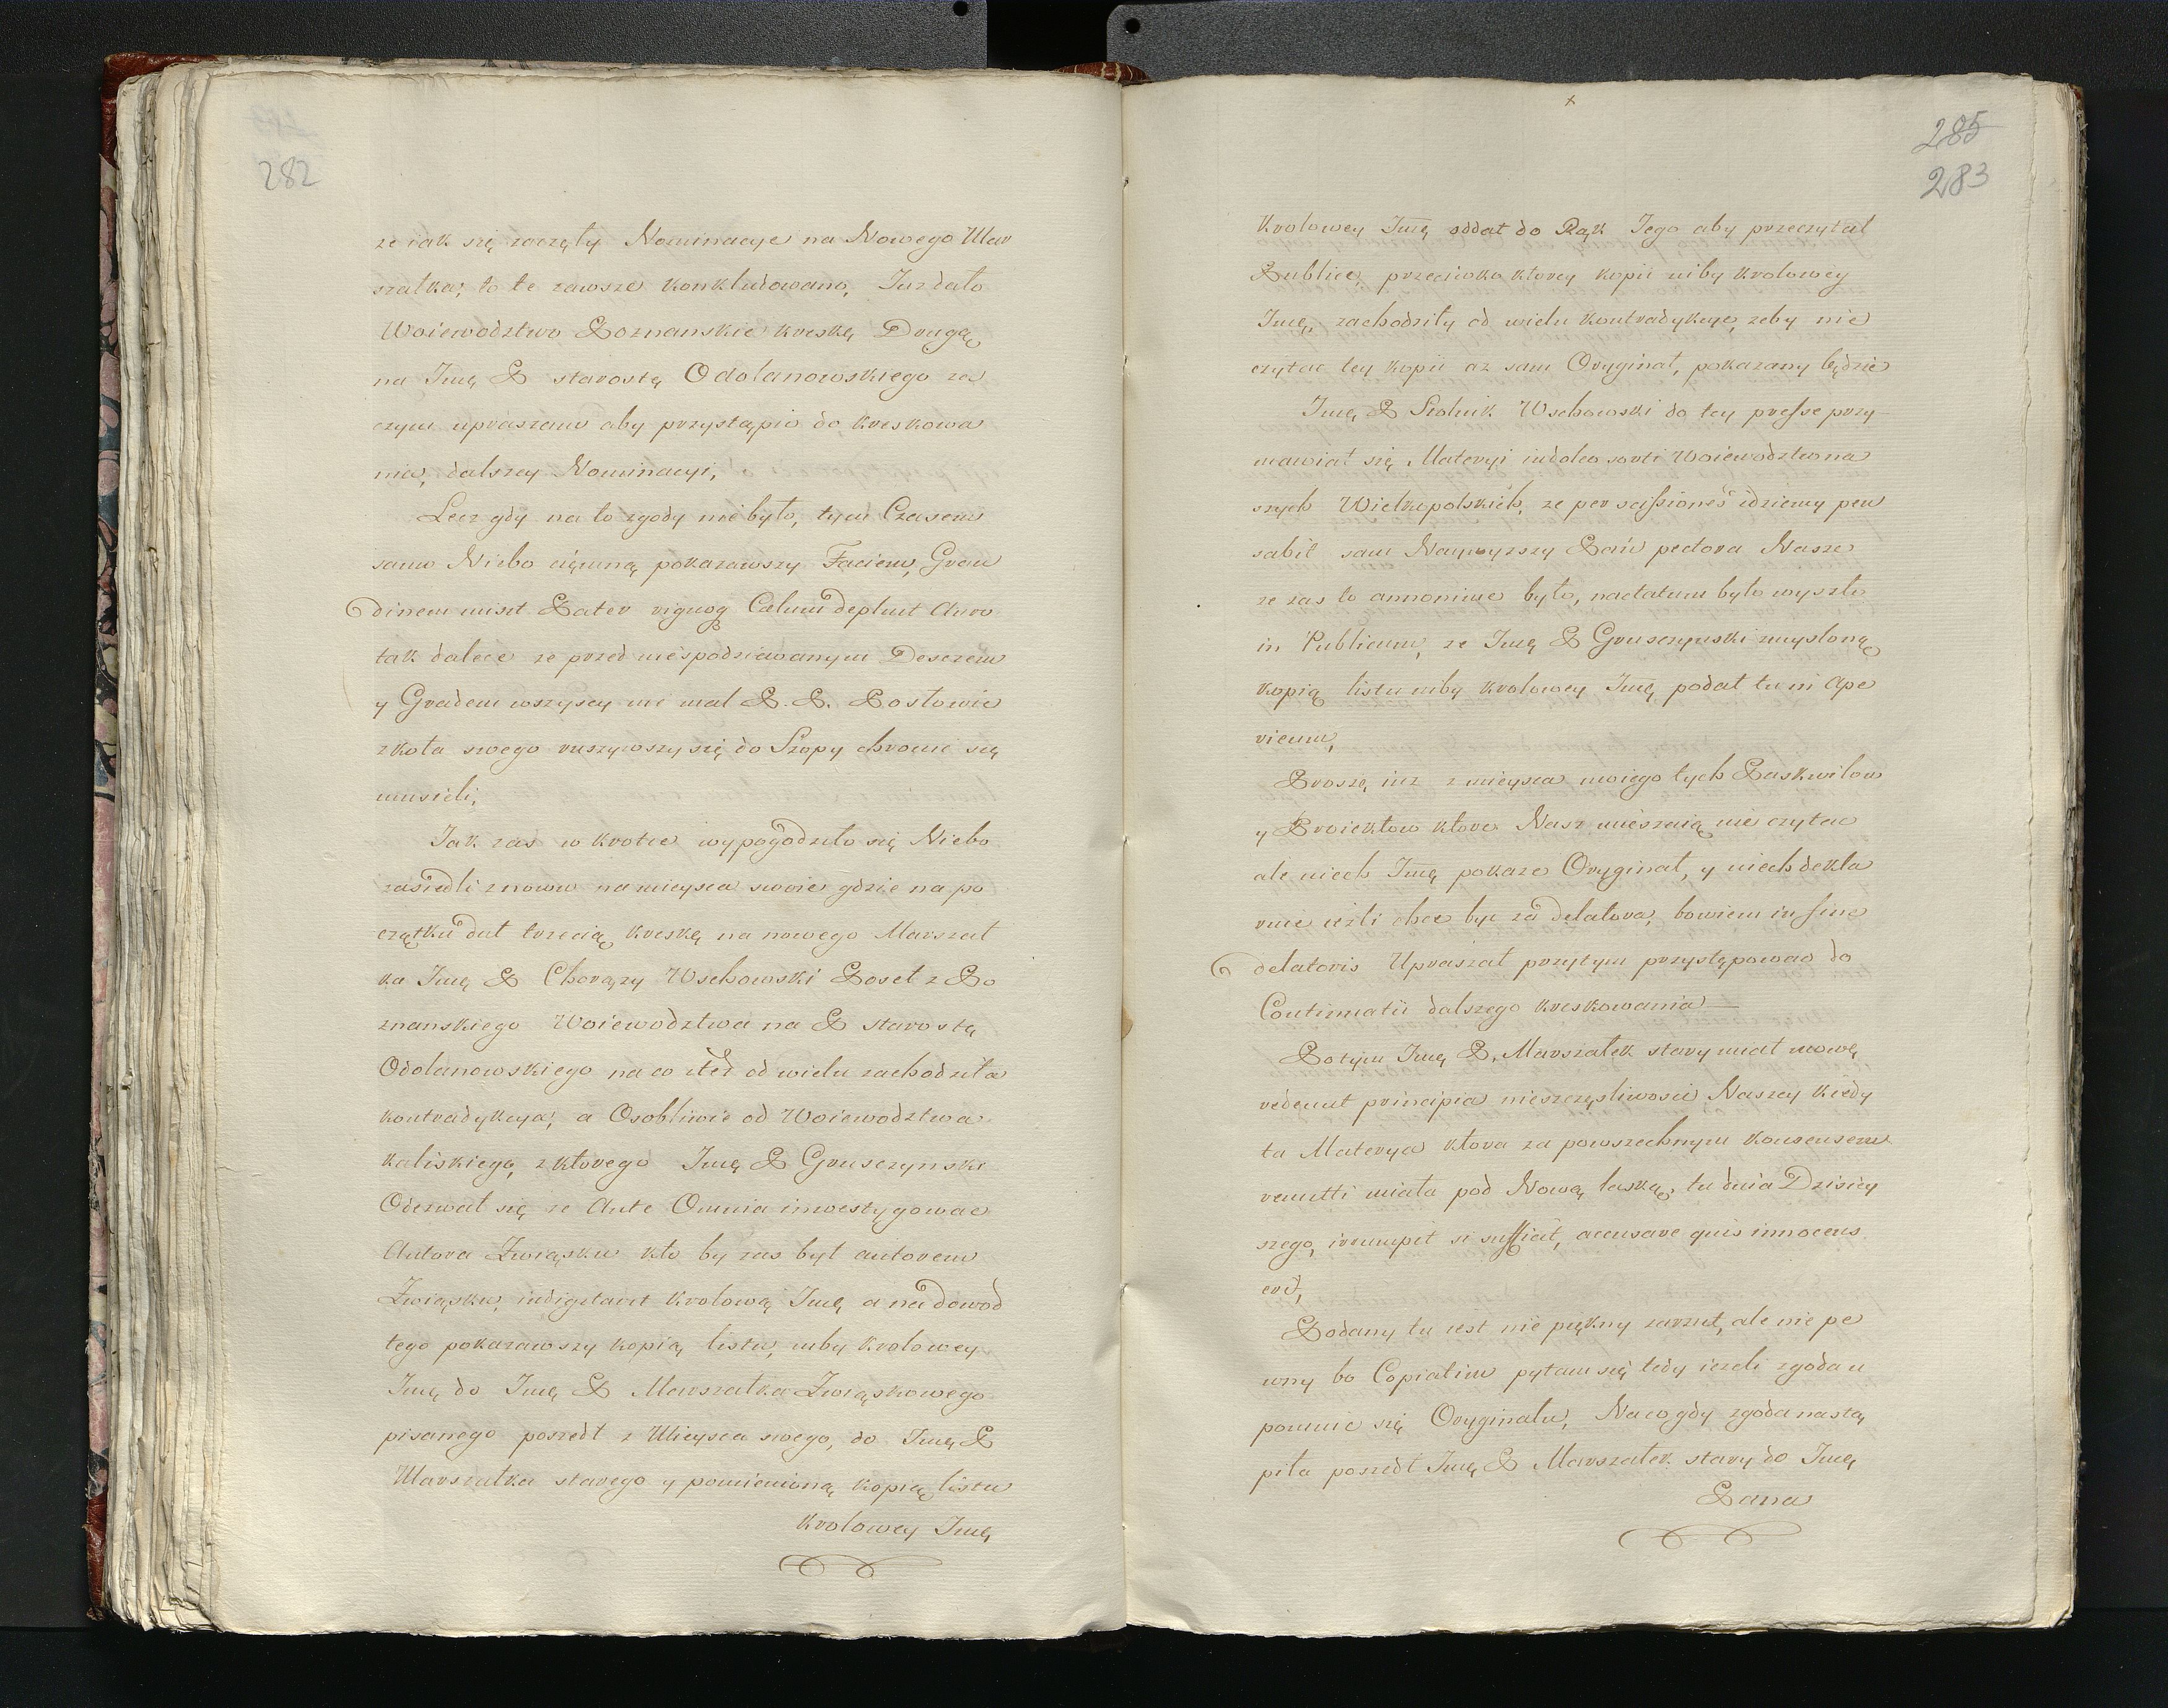 282
ze iak się zaczęły Nominacye na Nowego Mar
szałka, to te zawsze konkludowano, Juz dało
Woiewodztwo Poznanskie kreskę Drugą
na Jmę P starostę Odolanowskiego za
czym upraszam aby przystąpić do kreskowa
nia, dalszey Nominacyi,
Lecz gdy na to zgody nie było, tym Czasem
samo Niebo ciemną pokazawszy Faciem, Gran
dinem misit Pater Cælum depluit
tak dalece ze przed niespodziewanym Deszczem
y Gradem wszyscy nie mal P. P. Posłowie
zkoła swego ruszywszy się do Szopy chronić się
musieli,
Jak zas w krotce wypogodziło się Niebo
zasiedli znowu na mieysca swoie gdzie na po
czątku dał trzecią kreskę na nowego Marszał
ka Jmę P Chorązy Wschowski Poseł z Po
znanskiego Woiewodztwa na P starostę
Odolanowskiego na co też od wielu zachodziła
kontradykcya, a Osobliwie od Woiewodztwa
kaliskiego, z ktorego Jmę P Gruszczynski
Odezwał się ze Ante Omnia inwestygowac
Autora Związku kto by zas był autorem
Związku, indigitavit krolową Jmę a na dowod
tego pokazawszy kopią listu, niby krolowey
Jmę do Jmę P Marszałka Związkowego
pisanego poszedł z Mieysca swego, do Jmę P
Marszałka starego y pomienioną kopią listu
krolowey Jmę
285
283
krolowey Jmę oddał do Rąk Jego aby przeczytał
Publice, przeciwko ktorey kopii niby krolowey
Jmę, zachodziły od wielu kontradykcye, zeby nie
czytac tey kopii az sam Oryginał, pokazany będzie
Jmę P Stolnik Wschowski do tey presse przy
mawiał się Materyi indoleo sorti Woiewodztw na
szych Wielkopolskich, ze per scissiones idziemy pen
sabit sam Naywyzszy Pan pectora Nasze
ze zas to annonime było, nactatum było wyszło
in Publicum, ze Jmę P Gruszczynski zmysloną
kopią listu niby krolowey Jmę podał tu ni Ape
rienm,
Proszę iuz z mieysca moiego tych Paskwilow
y Proiektow ktore Nasz mieszaią nie czytac
ale niech Jmę pokaze Oryginał, y niech dekla
ruie iezli chce byc za delatora, bowiem in sinc
delatoris Upraszał przytym przystępowac do
Continuatii dalszego kreskowania —
Potym Jmę P. Marszałek stary miał mowę,
redeunt principia nieszczęsliwosci Naszey kiedy
ta Materya ktora za powszechnym konsensem
remitti miała pod Nową laską, tu dnia Dzisiey
szego, irrumpit si sufficiat, accusare quis innocens
erit,
Podany tu iest nie piękny zarzut, ale nie pe
wny bo Copiatim pytam się tedy iezeli zgoda u
pomnic się Oryginału, Na co gdy zgoda nastą
piła poszedł Jmę P Marszałek stary do Jmę
Pana